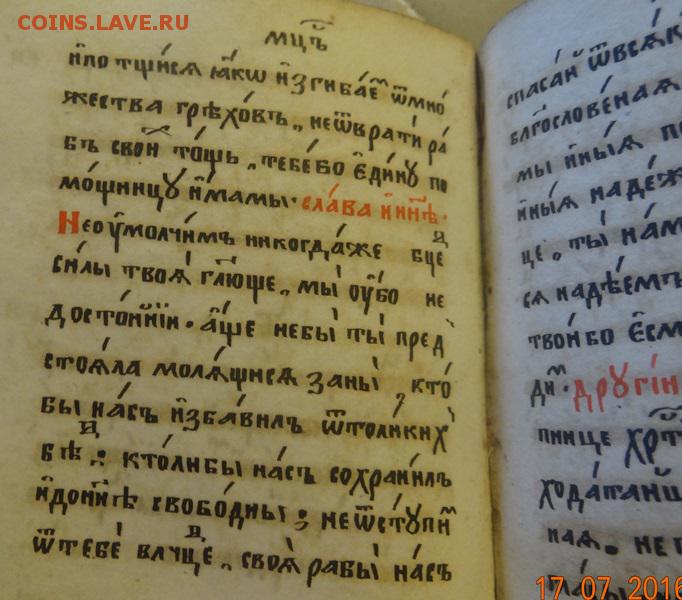 COINS.LAVE.RU
мцⷭ҇ъ
и҆потщи́сѧ ꙗ҆́кѡ и҆згиба́емъ ѿмно́
жества грѣхо́въ, неѿврати́ ра
бъ свои́ тощь, тебе́бо є҆ди́нꙋ по
мо́щницꙋ и҆́мамы. сла́ва и҆ ни́нѣ.
Неоу҆молчи́мъ никогда́же бцⷣе
си́лы твоѧ̀ гл҃юще, мы̀ оу҆́бо не
досто́йнїи. а҆́ще небы̀ ты̀ пред
стоѧ́ла молѧ́щисѧ заны̀, кто́
бы на́съ и҆зба́вилъ ѿтоли́ких
бѣⷣ: кто́либы на́съ сохрани́лъ
и҆дони́нѣ свобо́дны; неѿстꙋпи́м
ѿтебѐ влⷣчце, своѧ̀ рабы̀ на́съ
спаса́й ѿвсѧк
блг҃ослове́наѧ
мы и҆ны́ѧ по
и҆ны́ѧ наде́ж
це, ты̀ на́м
сѧ наде́емъ
твои́бо є҆см
ди. дрꙋгі́и
пнице хрⷭ҇т
хода́таиц
наѧ. не
17.07.2016